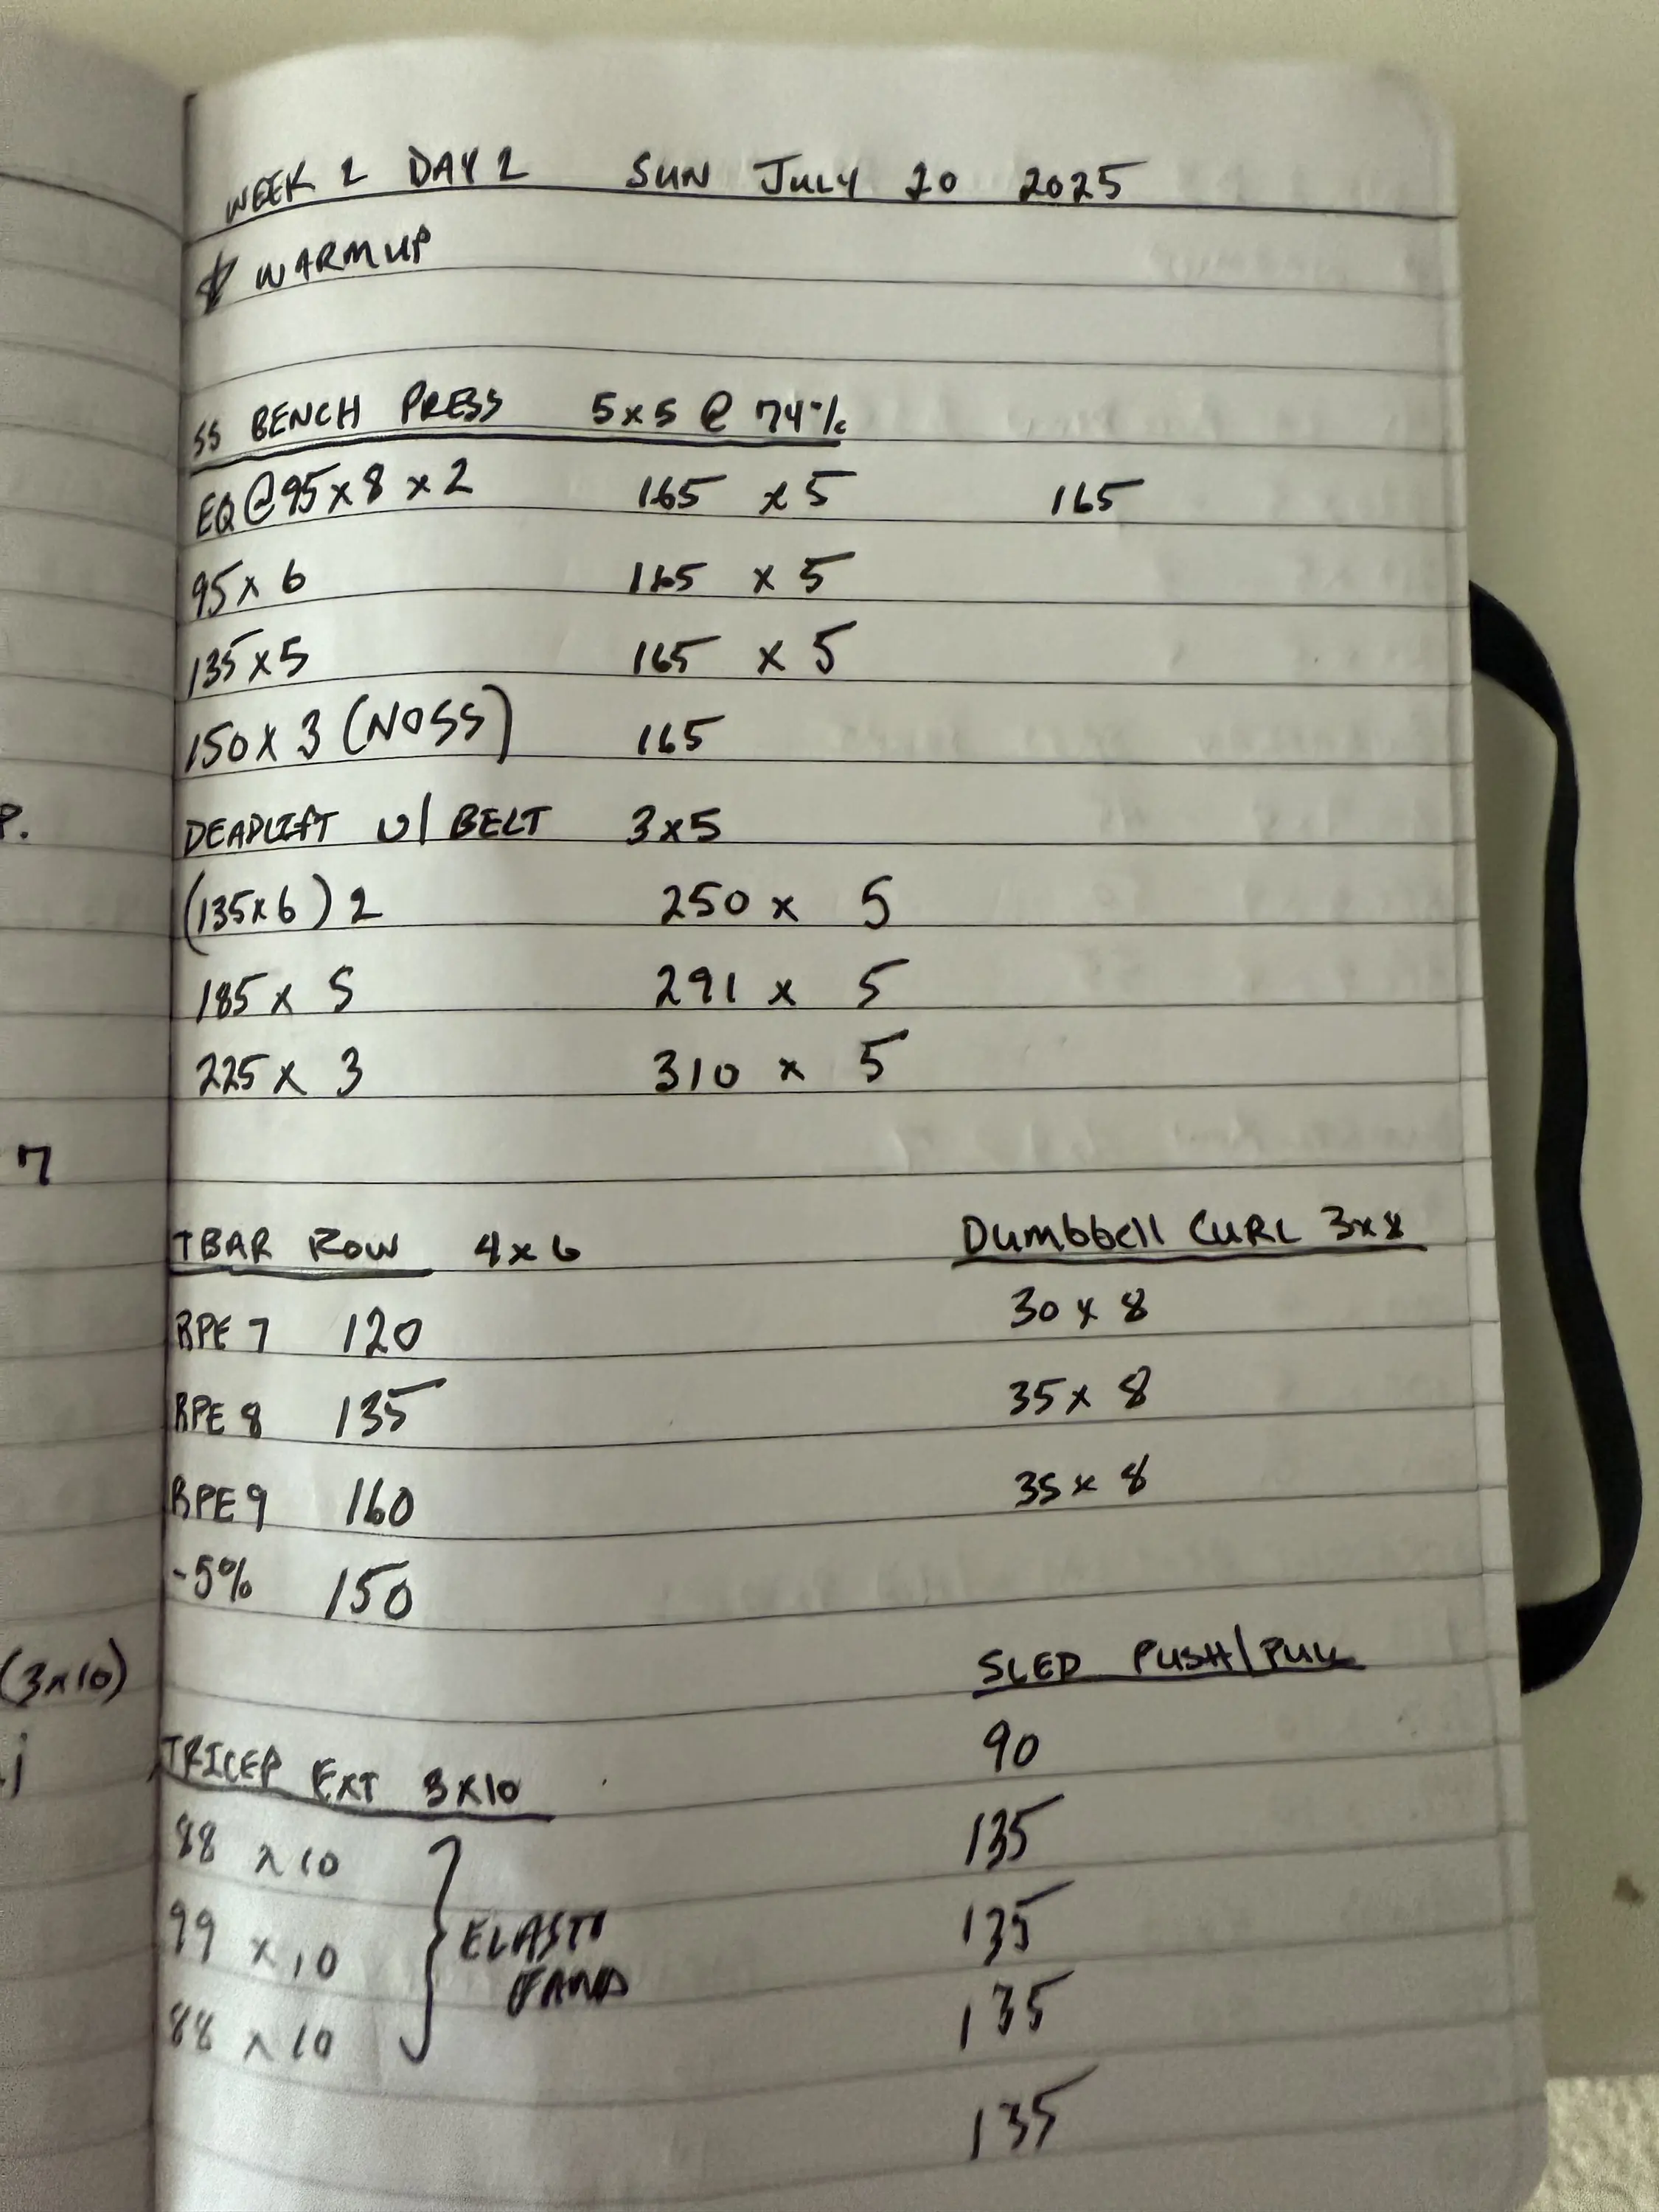 WEEK 2 DAY 2 SUN JULY 20 2025
WARMUP
SS BENCH PRESS 5x5 @ 74%
EQ @ 95 x 8 x 2 165 x 5 165
95 x 6 165 x 5
135 x 5 165 x 5
150 x 3 (NO SS) 165
DEADLIFT w/ BELT 3x5
(135x6) 2 250 x 5
185 x 5 291 x 5
225 x 3 310 x 5
TBAR ROW 4x6
RPE 7 120
RPE 8 135
RPE 9 160
-5% 150
Dumbbell CURL 3x8
30 x 8
35 x 8
35 x 8
TRICEP EXT 3x10
88 x 10
99 x 10
88 x 10
SLED PUSH/PULL
90
135
135
135
135
P.
7
(3x10)